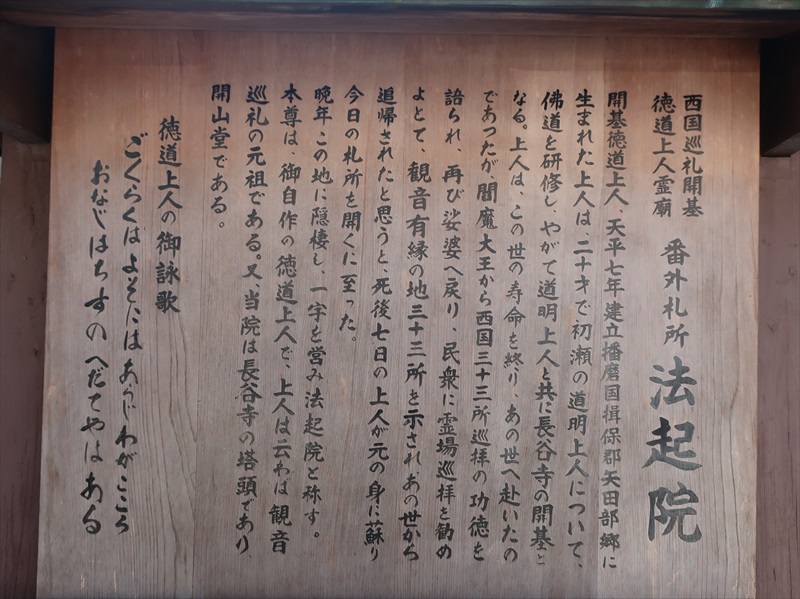 西国巡礼開基
徳道上人霊廟
番外札所 法起院
開基徳道上人、天平七年建立播磨国揖保郡矢田部郷に
生まれた上人は、二十才で初瀬の道明上人について、
佛道を研修し、やがて道明上人と共に長谷寺の開基と
なる。上人は、この世の寿命を終り、あの世へ赴いたの
であつたが、閻魔大王から西国三十三所巡拝の功徳を
語られ、再び娑婆へ戻り、民衆に霊場巡拝を勧め
よとて、観音有縁の地三十三所を示されあの世から
追帰されたと思うと、死後七日の上人が元の身に蘇り
今日の札所を開くに至った。
晩年この地に隠棲し、一宇を営み法起院と称す。
本尊は、御自作の徳道上人で、上人は云わば観音
巡礼の元祖である。又、当院は長谷寺の塔頭であり、
開山堂である。
徳道上人の御詠歌
ごくらくは よそにはあらじ わがこころ
おなじはちすの へだてやはある